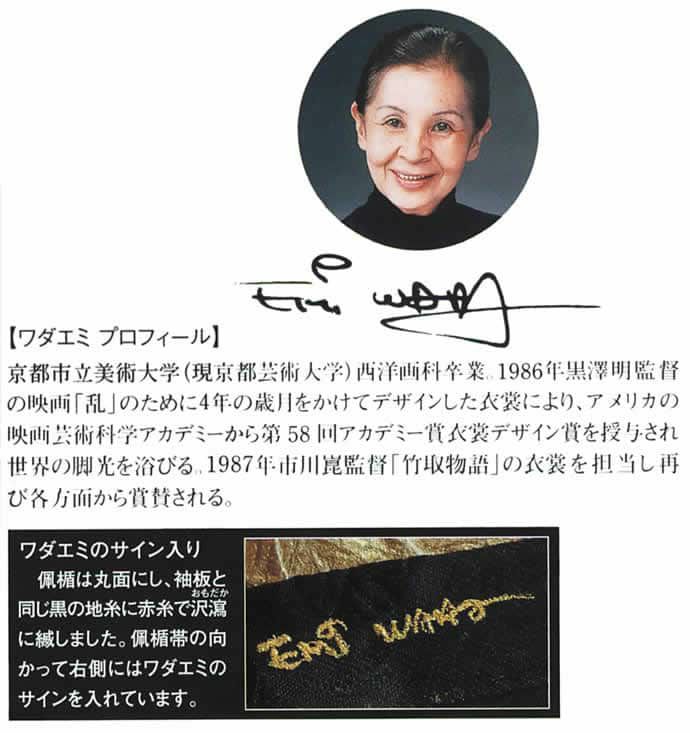 Emi WADA
【ワダエミ プロフィール】
京都市立美術大学(現京都芸術大学)西洋画科卒業。1986年黒澤明監督
の映画「乱」のために4年の歳月をかけてデザインした衣裳により、アメリカの
映画芸術科学アカデミーから第58回アカデミー賞衣裳デザイン賞を授与され
世界の脚光を浴びる。1987年市川崑監督「竹取物語」の衣裳を担当し再
び各方面から賞賛される。
ワダエミのサイン入り
佩楯は丸面にし、袖板と
同じ黒の地糸に赤糸で沢瀉
おもだか
に縅しました。佩楯帯の向
かって右側にはワダエミの
サインを入れています。
EMI WADA